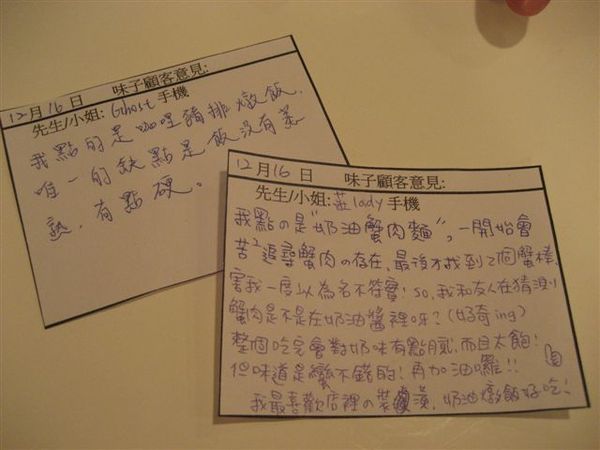 12月16日 味子顧客意見:
先生/小姐: Ghost 手機
我點的是咖哩豬排燉飯，
唯一的缺點是飯沒有蒸
熟，有點硬。
12月16日 味子顧客意見:
先生/小姐: 莊lady 手機
我點の是"奶油蟹肉麵"，一開始會
苦苦追尋蟹肉の存在，最後才找到了2個蟹棒，
害我一度以為名不符實！so，我和友人在猜測
蟹肉是不是在奶油醬裡呀？(好奇ing)
整個吃完會對奶味有點膩，而且太飽！
但味道是蠻不錯的！再加油囉!!
我最喜歡店裡の裝潢，奶油燉飯好吃！